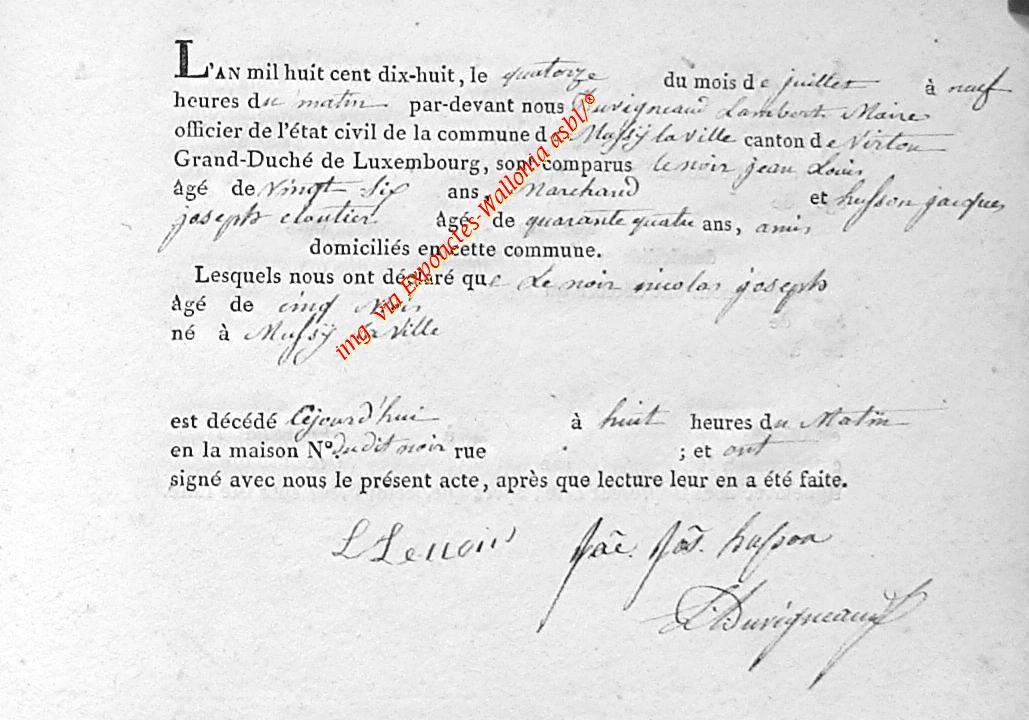 L'AN mil huit cent dix-huit, le quatorze du mois de juillet à neuf
heures du matin par-devant nous Duvigneaud Lambert Maire
officier de l'état civil de la commune de Mussÿ la ville canton de Virton
Grand-Duché de Luxembourg, sont comparus lenoir jean Louis
âgé de vingt six ans, Marchand et husson jacques
joseph cloutier âgé de quarante quatre ans, amis
domiciliés en cette commune.
Lesquels nous ont déclaré que Le noir nicolas joseph
âgé de cinq Mois
né à Mussÿ la Ville
est décédé Cejourd'hui à huit heures du Matin
en la maison N°. dudit noir rue ; et ont
signé avec nous le présent acte, après que lecture leur en a été faite.
L Lenoir Jac. Jos. husson
L Duvigneaud
img. via Expouctes-Wallonia asbl/®